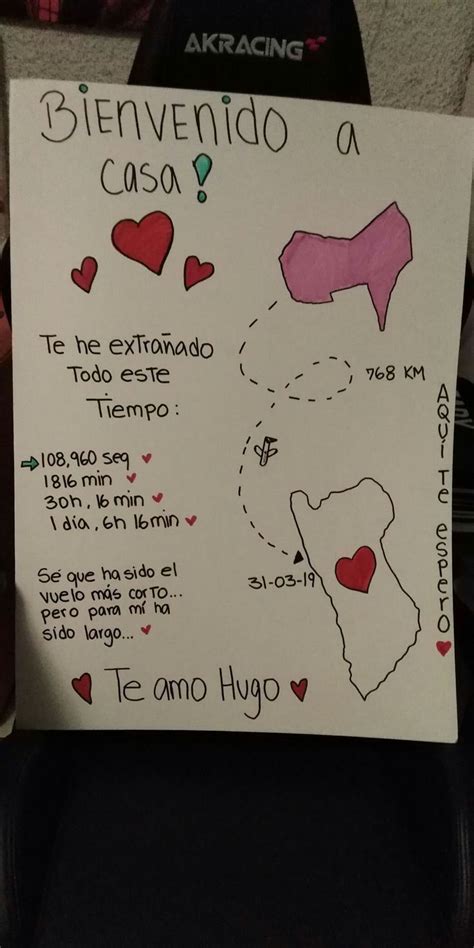 AKRACING
BiENVENido a
casa!
Te he extrañado
Todo este
Tiempo:
108,960 seg
1816 min
30h, 16 min
1 día, 6h 16min
Sé que ha sido el
vuelo más corto...
pero para mí ha
sido largo...
768 KM
31-03-19
AQUÍ Te espero
Te amo Hugo